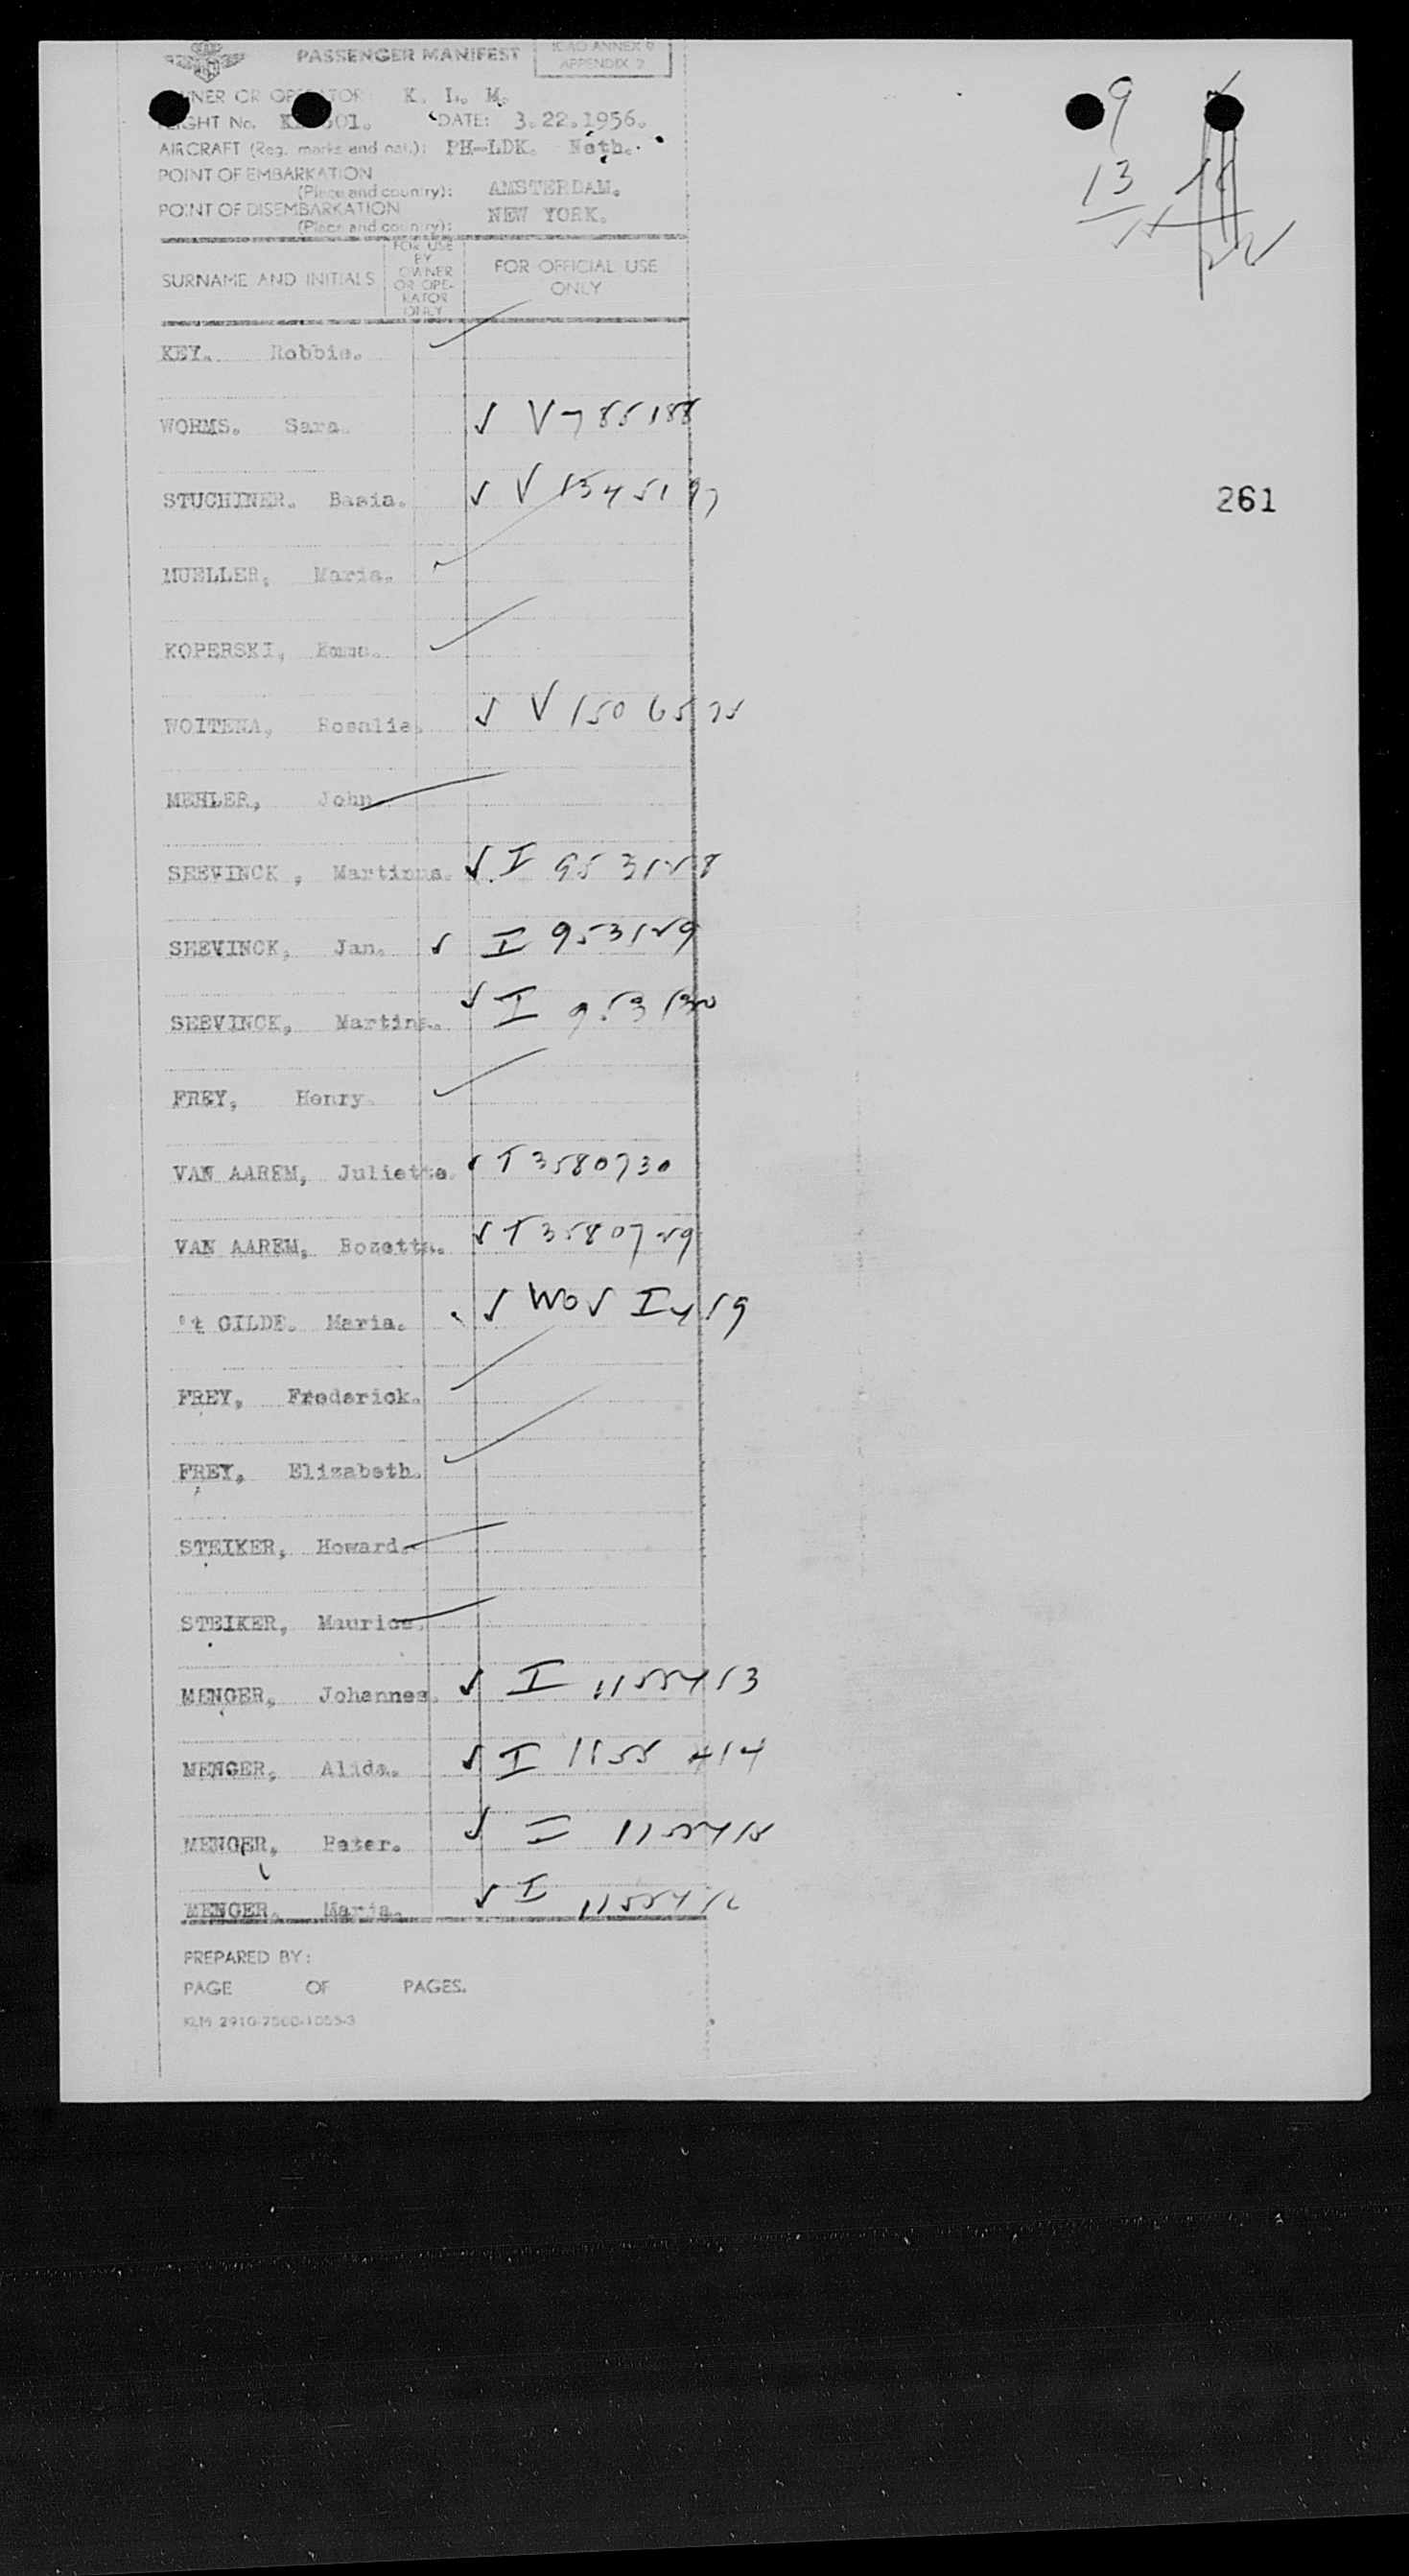 PASSENGER MANIFEST
ICAO ANNEX 9
APPENDIX 2
OWNER OR OPERATOR: K. L. M.
FLIGHT No. 601. DATE: 3.22.1956.
AIRCRAFT (Reg. marks and nat.): PH-LDK. Neth.
POINT OF EMBARKATION
(Place and country): AMSTERDAM.
POINT OF DISEMBARKATION
(Place and country): NEW YORK.
SURNAME AND INITIALS
FOR USE BY OWNER OR OPERATOR ONLY
FOR OFFICIAL USE ONLY
9
13
261
KEY. Robbie.
WORMS. Sara. V 785188
STUCHINER. Basia. V
MUELLER, Maria.
KOPERSKI,
WOITENA, Rosalie. V
MEHLER, John.
SEEVINCK, I 953128
SEEVINCK, Jan. I 953129
SEEVINCK, Martina. I 953130
FREY, Henry.
VAN AAREM, Julietta. T 3580730
VAN AAREM, Rozetta. T 3580729
't GILDE. Maria.
FREY, Frederick.
FREY, Elizabeth.
STEIKER, Howard.
STEIKER, Maurice.
MENGER, Johannes. I 1155413
MENGER, Alida. I 1155414
MENGER, Peter. I 1155415
MENGER. Maria. I 1155416
PREPARED BY:
PAGE OF PAGES.